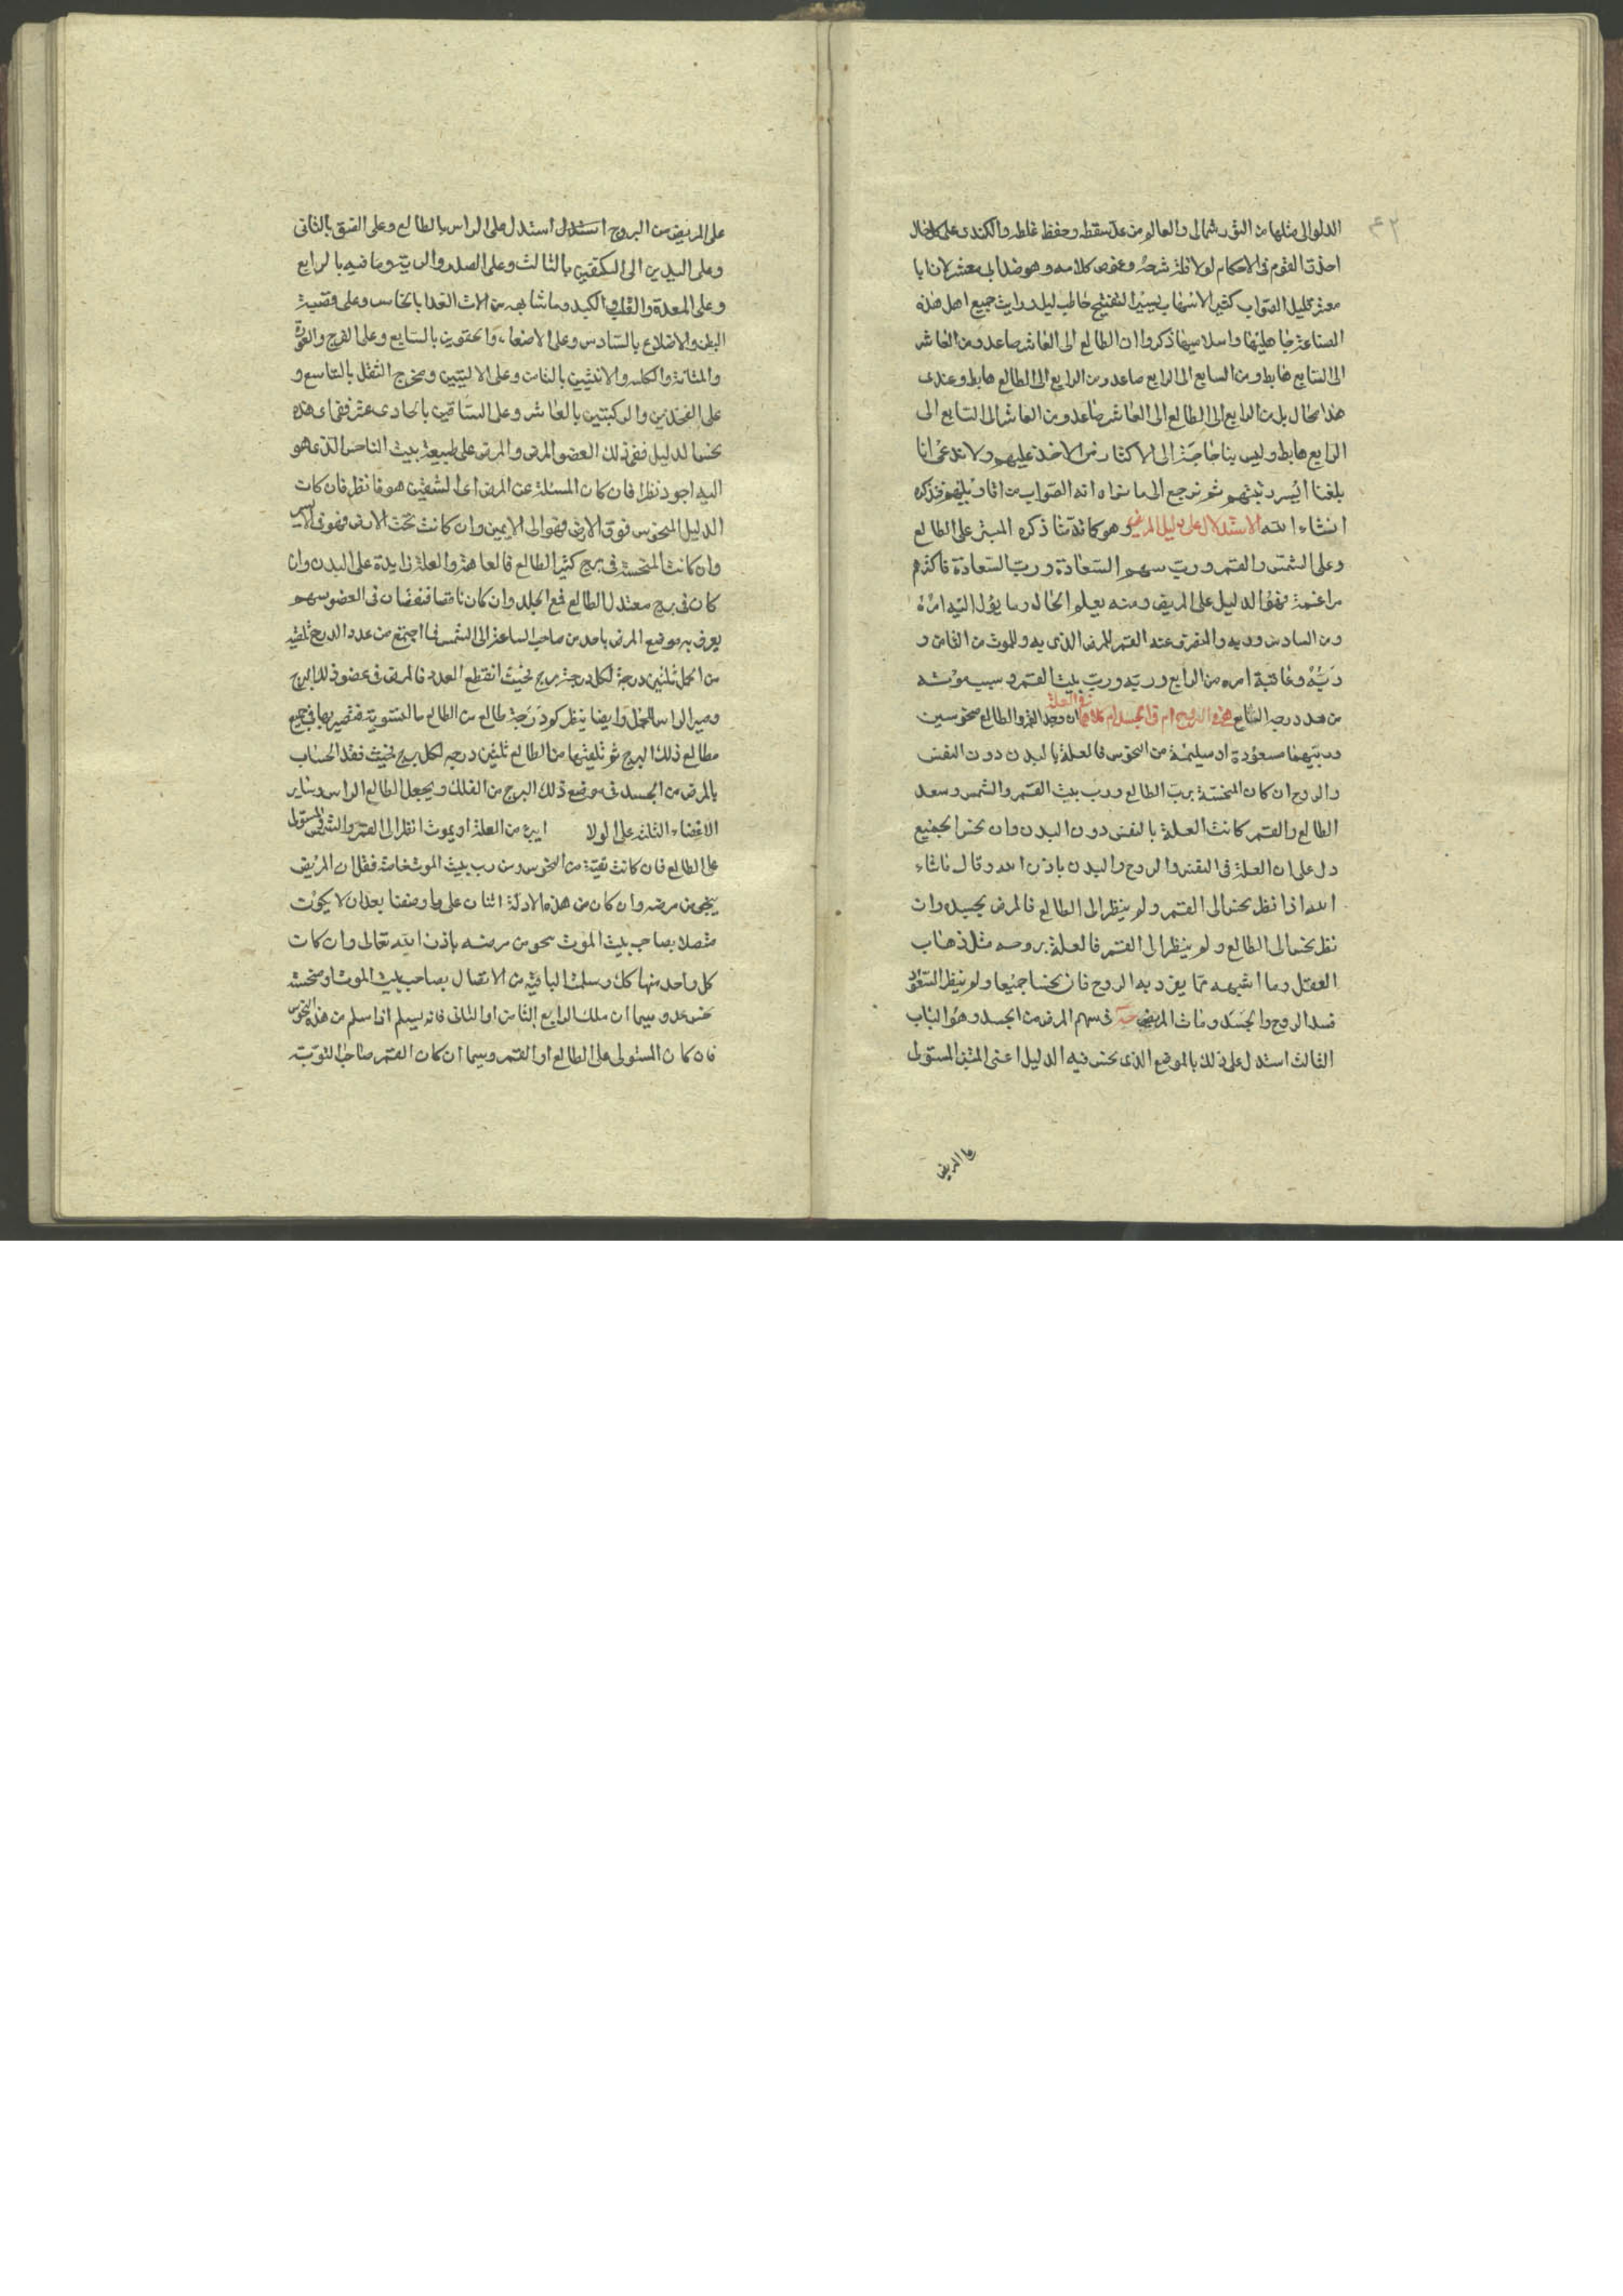 الدلو الى مثلها من الثور شمالى والعالم من عد سقطه وحفظ غلطه والكندى على كل حال
احذق القوم فى الاحكام لولا قلة شرحه وغموض كلامه وهو ضد ابى معشر لان ابا
معشر قليل الصواب كثير الاسهاب يسير التنقيح حاطب ليل ورايت جميع اهل هذه
الصناعة جاهليها واسلاميها ذكروا ان الطالع الى العاشر صاعد ومن العاشر
الى السابع هابط ومن السابع الى الرابع صاعد ومن الرابع الى الطالع هابط وعندى
هذا محال بل من الرابع الى الطالع الى العاشر صاعد ومن العاشر الى السابع الى
الرابع هابط وليس بنا حاجة الى الاكثار من الاخذ عليهم ولا ندعى انا
بلغنا ايسر رتبتهم ثم نرجع الى ما نراه انه الصواب من اقاويلهم فنذكره
انشاء الله الاستدلال على دليل المرض وهو كما قدمنا ذكره المبتز على الطالع
وعلى الشمس والقمر ورب سهم السعادة ورب السعادة فاكثرهم
مزاعمة فهو الدليل على المريض ومنه يعلم الحال وما يؤل اليه امره
ومن السادس وربه والمنصرف عنه القمر المرض الذى به والموت من الثامن و
ربه وعاقبة امره من الرابع وربه ورب بيت القمر وسبب موته
من حد درجه السابع فى العلة هى فى الروح ام فى الجسد ام كلاهما ان وجد القمر والطالع منحوسين
وربيهما مسعودة او سليمة من النحوس فالعلة بالبدن دون النفس
والروح ان كان المنحسة برب الطالع ورب بيت القمر والشمس وسعد
الطالع والقمر كانت العلة بالنفس دون البدن وان نحس الجميع
دل على ان العلة فى النفس والروح والبدن باذن الله وقال ماشاء
الله اذا نظر نحس الى القمر ولم ينظر الى الطالع فالمرض بجسده وان
نظر نحس الى الطالع ولم ينظر الى القمر فالعلة بروحه مثل ذهاب
العقل وما اشبهه مما يفرد به الروح فان نحسا جميعا ولم ينظر السعود
فسد الروح والجسد ومات المريض فى سهم المرض من الجسد وهو الباب
الثالث استدل على ذلك بالموضع الذى نحس فيه الدليل اعنى المبتز المستولى
على المريض
على المريض من البروج استدل استدل على الراس بالطالع وعلى العنق بالثانى
وعلى اليدين الى الكتفين بالثالث وعلى الصدر والرية وما فيه بالرابع
وعلى المعدة والقلب والكبد وما شابهه من الات الغدا بالخامس وعلى قصبة
البطن والاضلاع بالسادس وعلى الامعاء والحقوين بالسابع وعلى الفرج والعورة
والمثانة والكلية والانثيين بالثامن وعلى الاليتين ومخرج الثفل بالتاسع و
على الفخذين والركبتين بالعاشر وعلى الساقين بالحادى عشر ففى اى هذه
نحس الدليل ففى ذلك العضو المرض والمرض على طبيعة بيت الناحس الذى هو
اليه اجود نظرا فان كان المسئلة عن المرض اى الشقين هو فانظر فان كان
الدليل المنحوس فوق الارض فهو الى الايمن وان كانت تحت الارض فهو فى الايسر
وان كانت المنحسة فى برج كثير الطالع فالعاهة والعلة زايدة على البدن وان
كان فى برج معتدل الطالع فمع الجلد وان كان ناقصا فنقصان فى العضو سهم
يعرف به موضع المرض ياخذ من صاحب الساعة الى الشمس فما اجتمع من عدد الدرج تلقيه
من الحمل ثلثين درجة لكل درجة برج فحيث انقطع العدد فالمرض فى عضو ذلك البرج
وصير الراس للحمل وايضا ينظر كم درجة طالع من الطالع بالتسوية فتضربها فى جميع
مطالع ذلك البرج ثم تلقيها من الطالع ثلثين درجه لكل برج فحيث فقد الحساب
فالمرض من الجسد فى موضع ذلك البرج من الفلك ويجعل الطالع الراس وساير
الاعضاء الثلثه على الولا ايبرء من العلة او يموت انظر الى القمر والشمس والمستولى
على الطالع فان كانت نقية من النحوس ومن رب بيت الموت خاصة فقل ان المريض
ينجى من مرضه وان كان من هذه الادلة اثنان على ما وصفنا بعد ان لا يكون
متصلا بصاحب بيت الموت ينجو من مرضه باذن الله تعالى وان كان
كل واحد منها كذلك وسلمت الباقية من الاتصال بصاحب بيت الموت او منحسة
نحس عدو سيما ان ملك الرابع الثامن او الثانى فانه يسلم اذا سلم من هذه النحوس
فان كان المستولى على الطالع او القمر وسيما ان كان القمر صاحب النوبة